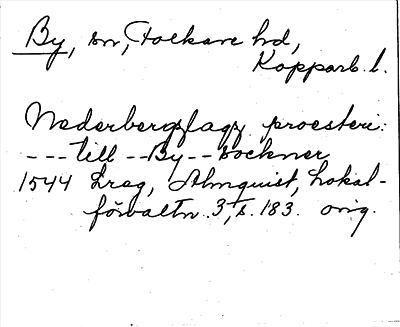 By, sn, Folkare hd,
Kopparb. l.
Nederbergzlagz proesteri:
--- till -- By -- sockner
1544 Ereg, Almquist, Lokal-
förvaltn. 3, s. 183. orig.